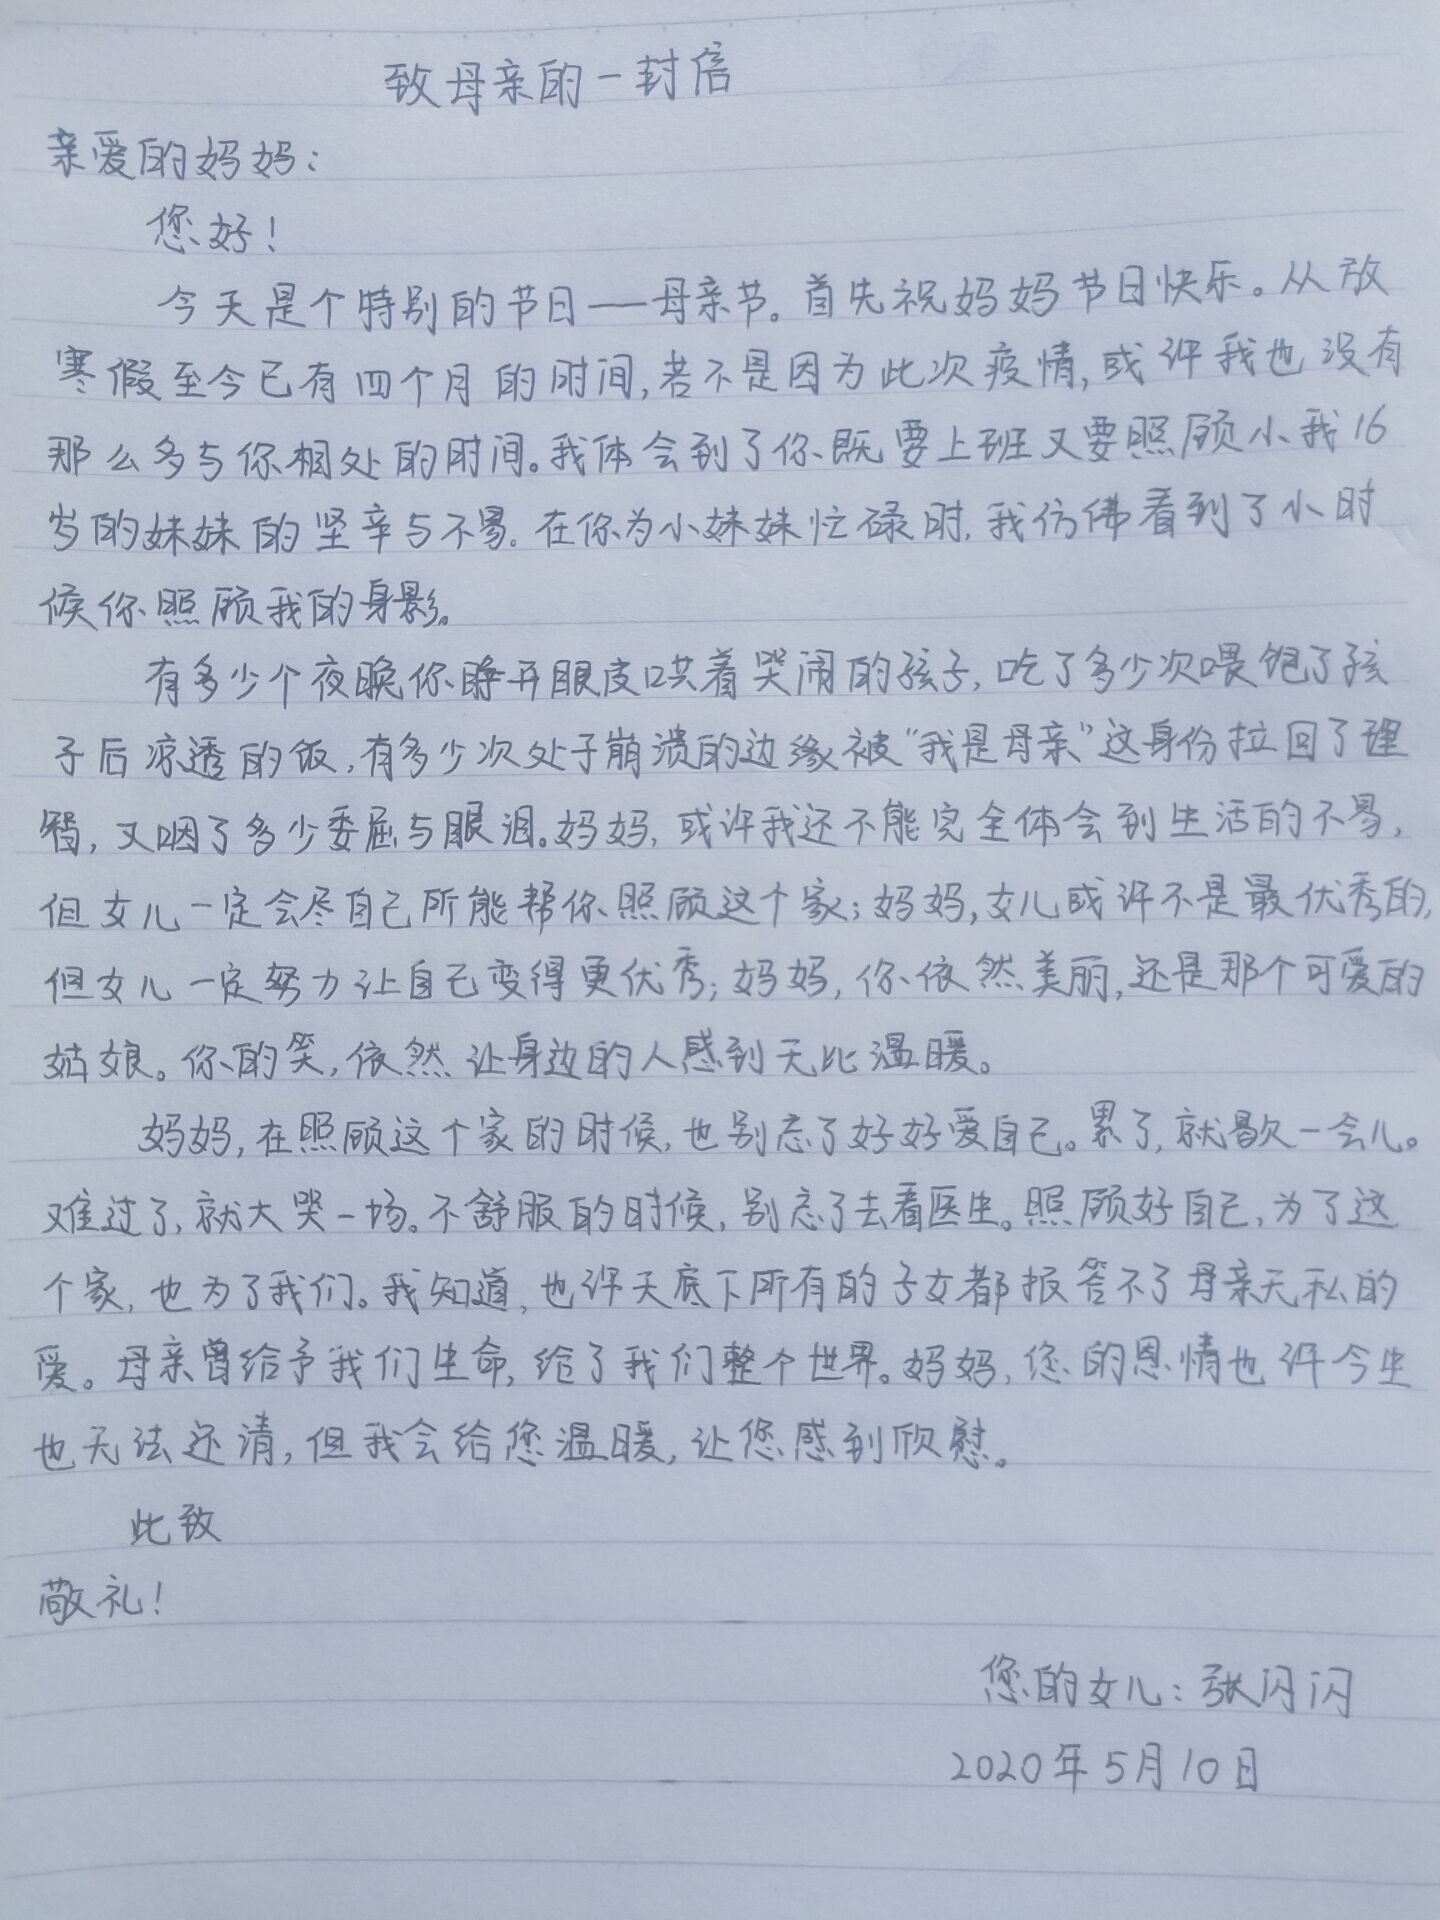 致母亲的一封信
亲爱的妈妈：
您好！
今天是个特别的节日——母亲节。首先祝妈妈节日快乐。从放
寒假至今已有四个月的时间，若不是因为此次疫情，或许我也没有
那么多与你相处的时间。我体会到了你既要上班又要照顾小我16
岁的妹妹的坚辛与不易。在你为小妹妹忙碌时，我仿佛看到了小时
候你照顾我的身影。
有多少个夜晚你睁开眼皮哄着哭闹的孩子，吃了多少次喂饱了孩
子后凉透的饭，有多少次处于崩溃的边缘被“我是母亲”这身份拉回了理
智，又咽了多少委屈与眼泪。妈妈，或许我还不能完全体会到生活的不易，
但女儿一定会尽自己所能帮你照顾这个家；妈妈，女儿或许不是最优秀的，
但女儿一定努力让自己变得更优秀；妈妈，你依然美丽，还是那个可爱的
姑娘。你的笑，依然让身边的人感到无比温暖。
妈妈，在照顾这个家的时候，也别忘了好好爱自己。累了，就歇一会儿。
难过了，就大哭一场。不舒服的时候，别忘了去看医生。照顾好自己，为了这
个家，也为了我们。我知道，也许天底下所有的子女都报答不了母亲无私的
爱。母亲曾给予我们生命，给了我们整个世界。妈妈，您的恩情也许今生
也无法还清，但我会给您温暖，让您感到欣慰。
此致
敬礼！
您的女儿：张闪闪
2020年5月10日